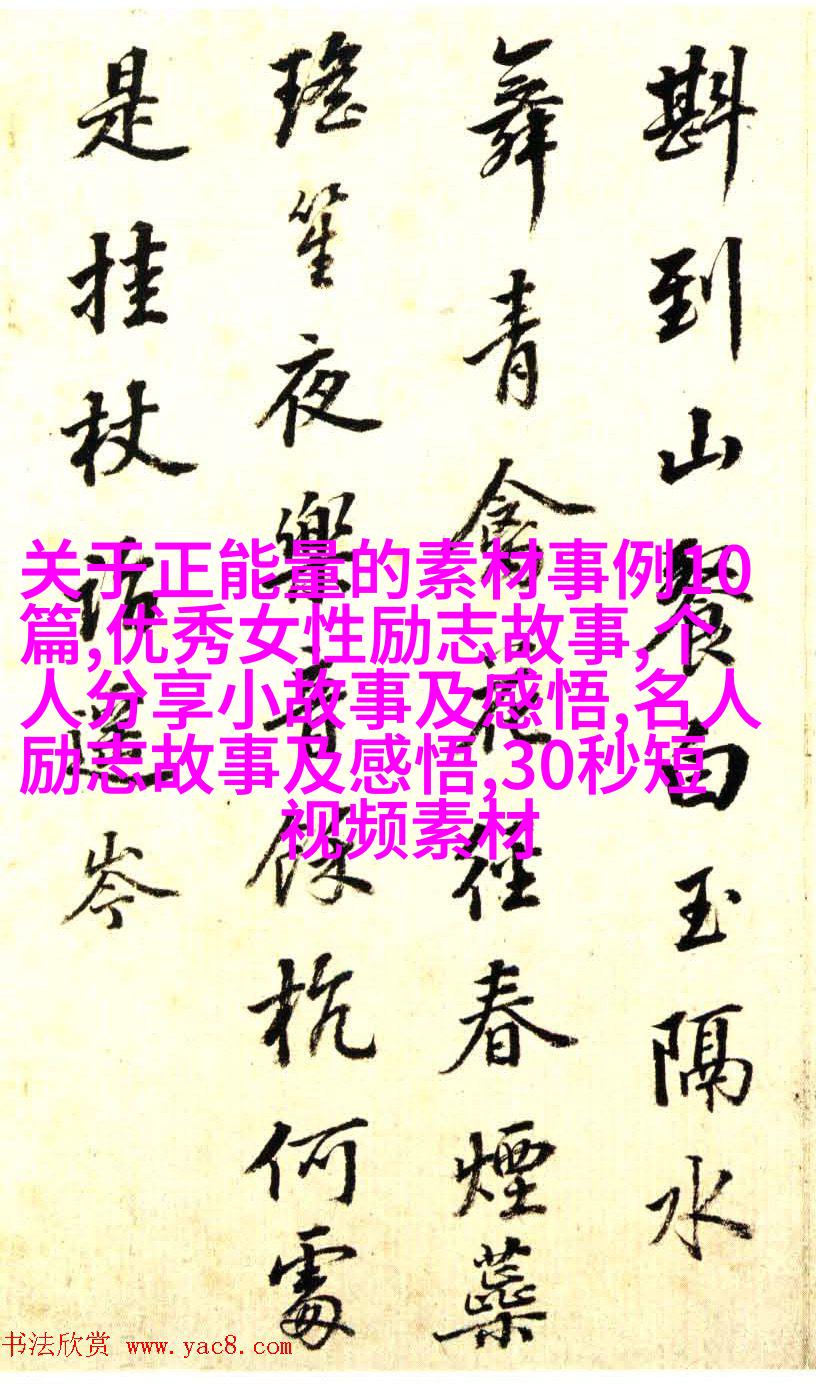 斟到山餐白玉隔水
舞青禽花徑春煙蘂
瑤笙夜樂音餘杭何處
是挂杖話遥岑
关于正能量的素材事例10
篇,优秀女性励志故事,个
人分享小故事及感悟,名人
励志故事及感悟,30秒短
视频素材
书法欣赏 www.yac8.com